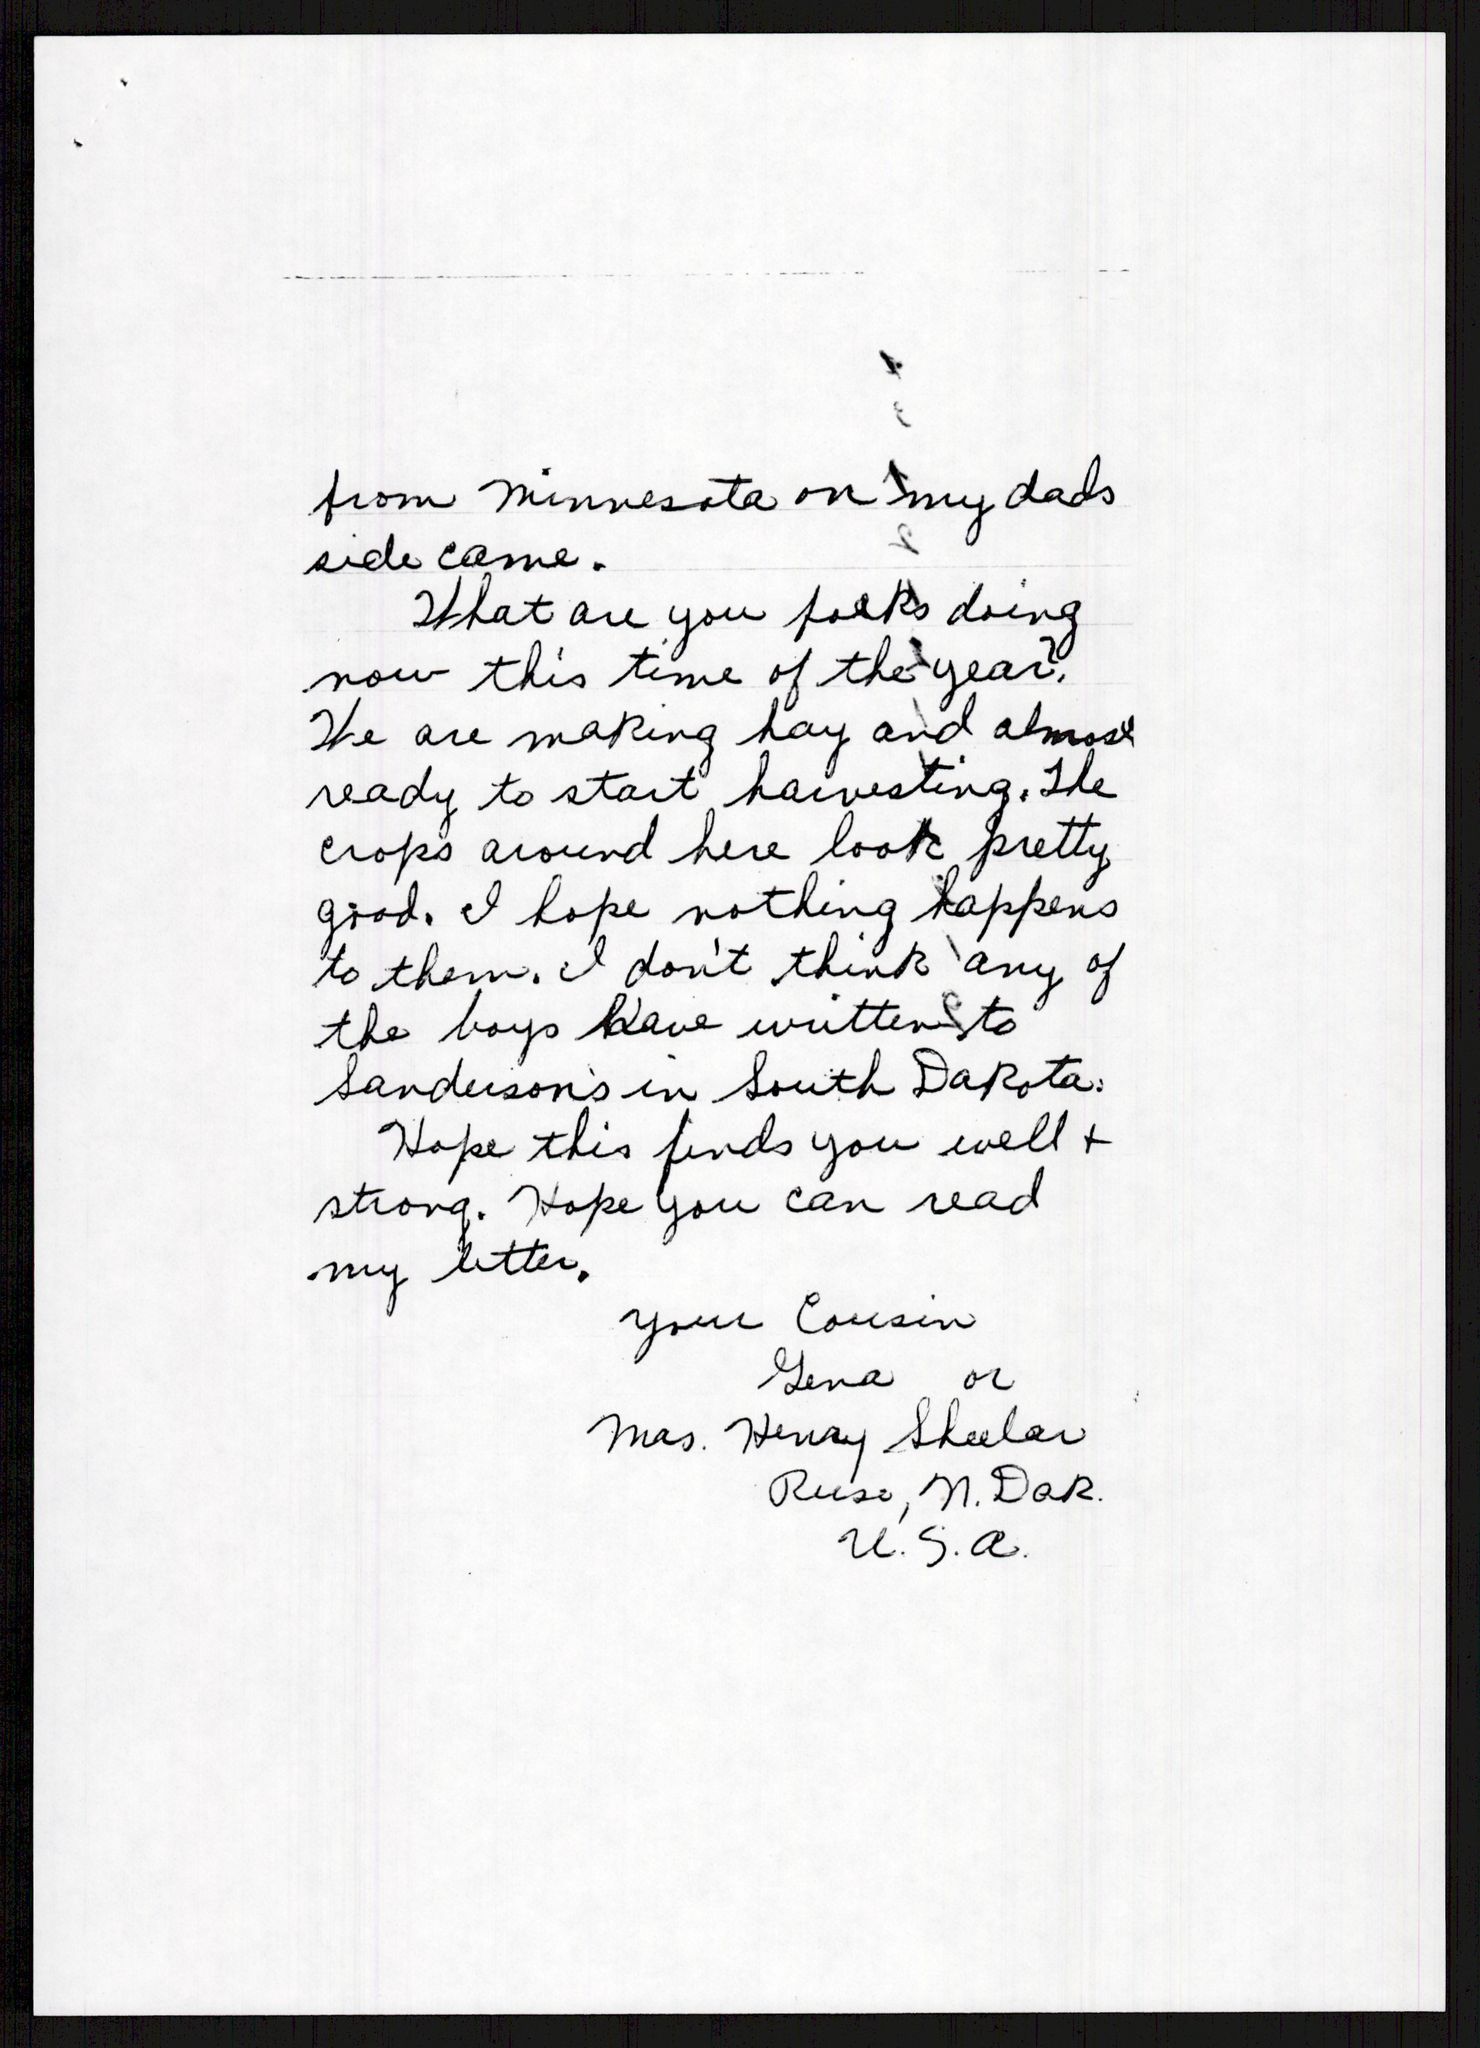 from Minnesota on my dads
side came.
What are you folks doing
now this time of the year?
We are making hay and almost
ready to start harvesting. The
crops around here look pretty
good. I hope nothing happens
to them. I don't think any of
the boys have written to
Sanderson's in South Dakota.
Hope this finds you well +
strong. Hope you can read
my letter.
Your Cousin
Gena or
Mrs. Henry Sheelar
N. Dak.
U.S.A.